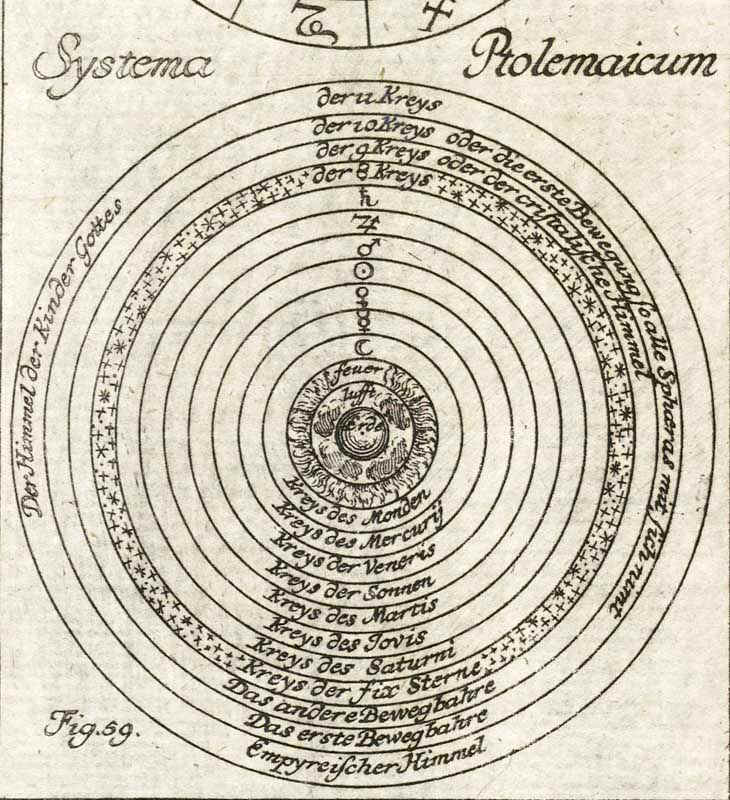 Systema Ptolemaicum
der 11 Kreys
der 10 Kreys oder die erste Bewegung so alle Sphæras mit sich nimt
der 9 Kreys oder der cristalische Himmel
der 8 Kreys
Der Himmel der Kinder Gottes
♄
♃
♂
☉
♀
☿
☾
feuer
lufft
Erde
Kreys des Monden
Kreys des Mercurij
Kreys der Veneris
Kreys der Sonnen
Kreys des Martis
Kreys des Jovis
Kreys des Saturni
Kreys der fix Sterne
Das andere Bewegbahre
Das erste Bewegbahre
Empyreischer Himmel
Fig. 59.